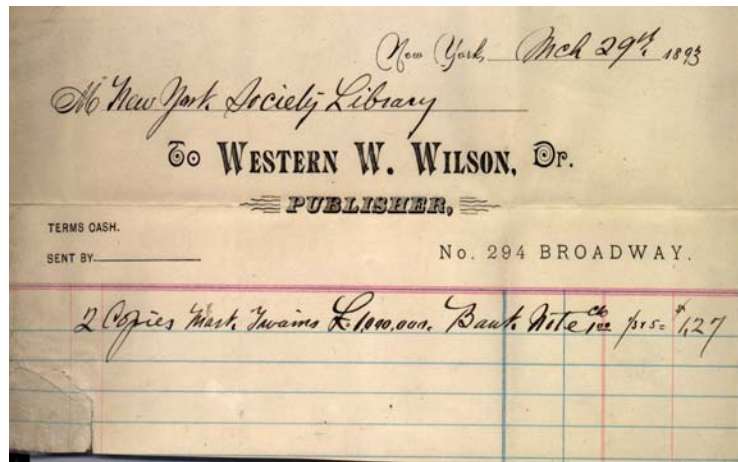 New York, Mch 29th. 1893
M New York Society Library
To WESTERN W. WILSON, Dr.
PUBLISHER,
TERMS CASH.
SENT BY
No. 294 BROADWAY.
2 Copies Mark Twains £1,000,000. Bank Note 1.00 $1,27